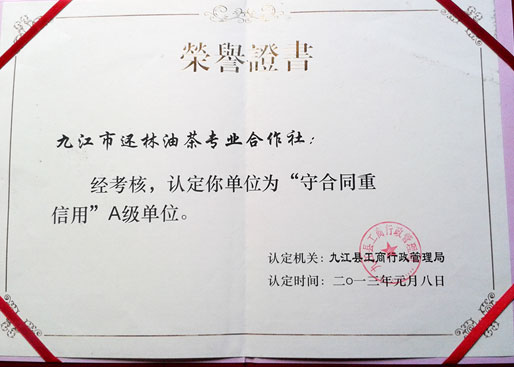 榮譽證書
九江市还林油茶专业合作社：
经考核，认定你单位为“守合同重
信用”A级单位。
认定机关：九江县工商行政管理局
认定时间：二〇一三年元月八日
九江县工商行政管理局